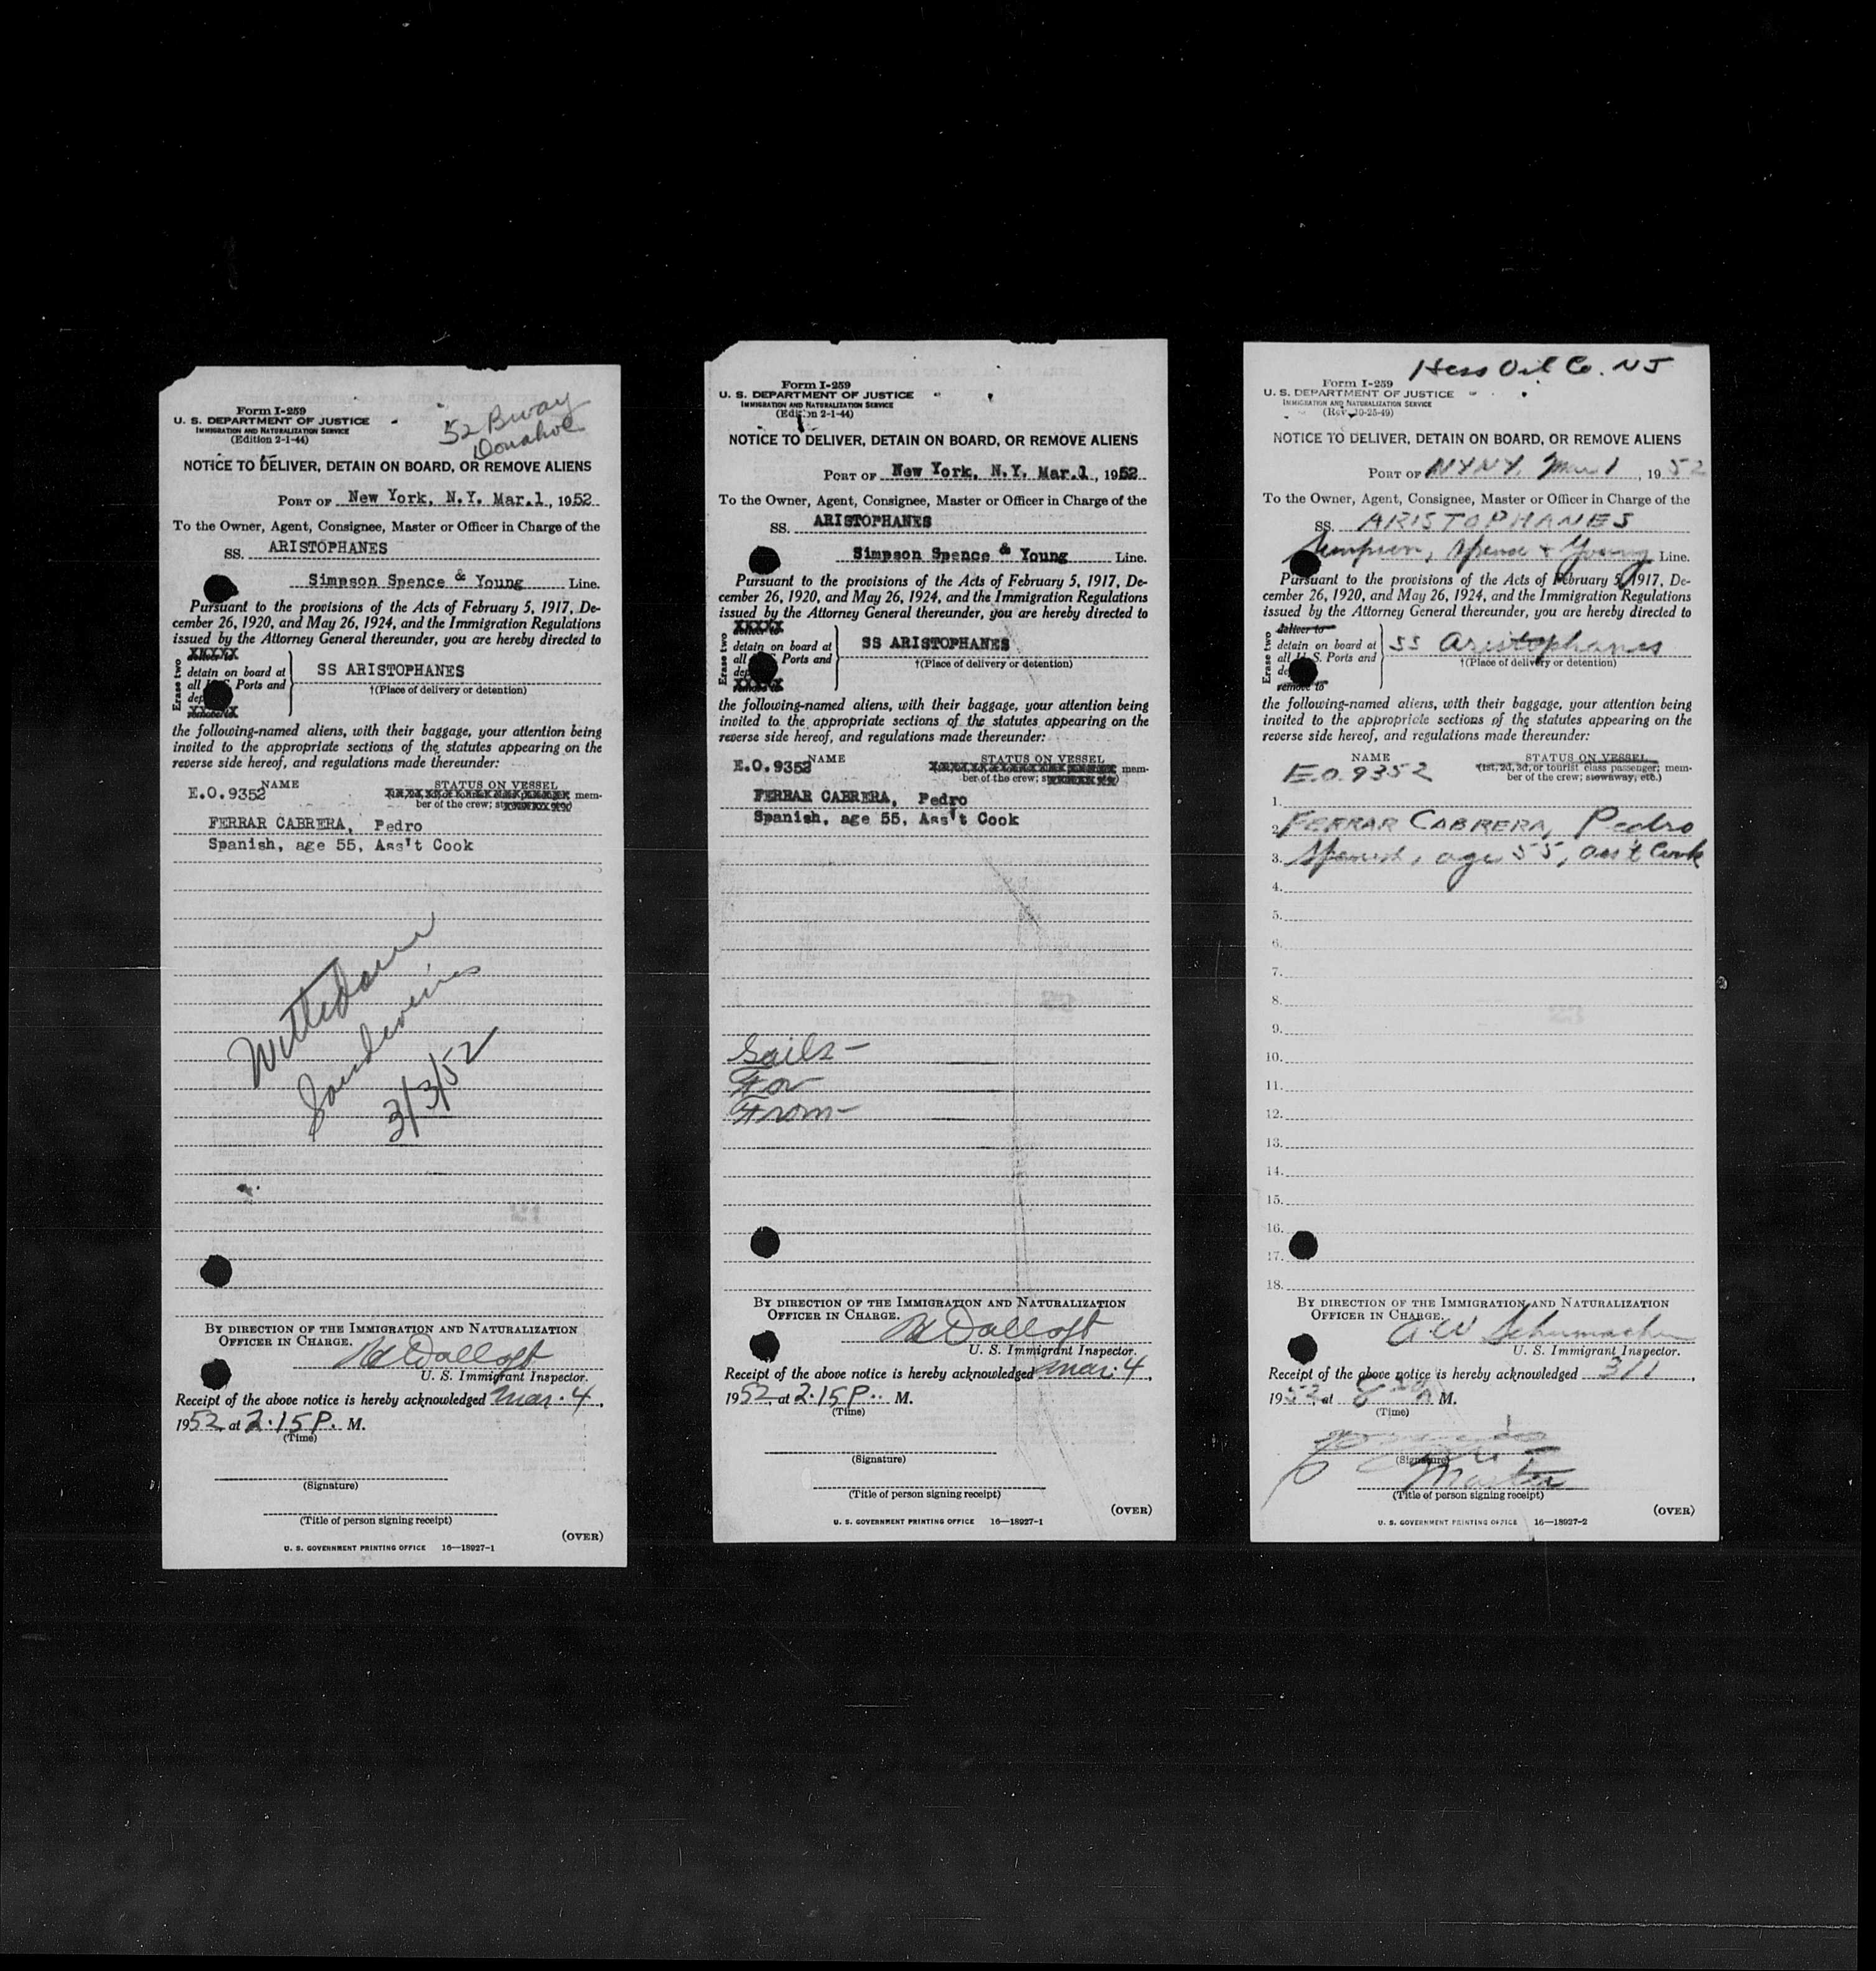 Form I-259
U. S. DEPARTMENT OF JUSTICE
IMMIGRATION AND NATURALIZATION SERVICE
(Edition 2-1-44)
52 Bway
Donahoe
NOTICE TO DELIVER, DETAIN ON BOARD, OR REMOVE ALIENS
PORT OF New York, N.Y. Mar.1, 1952
To the Owner, Agent, Consignee, Master or Officer in Charge of the
SS. ARISTOPHANES
Simpson Spence & Young Line.
Pursuant to the provisions of the Acts of February 5, 1917, De-
cember 26, 1920, and May 26, 1924, and the Immigration Regulations
issued by the Attorney General thereunder, you are hereby directed to
Erase two
deliver to
detain on board at
all Ports and
remove to
SS ARISTOPHANES
†(Place of delivery or detention)
the following-named aliens, with their baggage, your attention being
invited to the appropriate sections of the statutes appearing on the
reverse side hereof, and regulations made thereunder:
E.O.9352 NAME STATUS ON VESSEL
mem-
ber of the crew;
FERRAR CABRERA, Pedro
Spanish, age 55, Ass't Cook
3/3/52
BY DIRECTION OF THE IMMIGRATION AND NATURALIZATION
OFFICER IN CHARGE.
U. S. Immigrant Inspector.
Receipt of the above notice is hereby acknowledged Mar. 4,
1952 at 2.15 P. M.
(Time)
(Signature)
(Title of person signing receipt)
(OVER)
U. S. GOVERNMENT PRINTING OFFICE 16—18927-1
Form I-259
U. S. DEPARTMENT OF JUSTICE
IMMIGRATION AND NATURALIZATION SERVICE
(Edition 2-1-44)
NOTICE TO DELIVER, DETAIN ON BOARD, OR REMOVE ALIENS
PORT OF New York, N.Y. Mar.1, 1952
To the Owner, Agent, Consignee, Master or Officer in Charge of the
SS. ARISTOPHANES
Simpson Spence & Young Line.
Pursuant to the provisions of the Acts of February 5, 1917, De-
cember 26, 1920, and May 26, 1924, and the Immigration Regulations
issued by the Attorney General thereunder, you are hereby directed to
Erase two
deliver to
detain on board at
all Ports and
remove to
SS ARISTOPHANES
†(Place of delivery or detention)
the following-named aliens, with their baggage, your attention being
invited to the appropriate sections of the statutes appearing on the
reverse side hereof, and regulations made thereunder:
E.O.9352 NAME STATUS ON VESSEL
mem-
ber of the crew;
FERRAR CABRERA, Pedro
Spanish, age 55, Ass't Cook
Sails-
For
From-
BY DIRECTION OF THE IMMIGRATION AND NATURALIZATION
OFFICER IN CHARGE.
U. S. Immigrant Inspector.
Receipt of the above notice is hereby acknowledged Mar. 4,
1952 at 2.15 P. M.
(Time)
(Signature)
(Title of person signing receipt)
(OVER)
U. S. GOVERNMENT PRINTING OFFICE 16—18927-1
Hess Oil Co. NJ
Form I-259
U. S. DEPARTMENT OF JUSTICE
IMMIGRATION AND NATURALIZATION SERVICE
(Rev. 10-25-49)
NOTICE TO DELIVER, DETAIN ON BOARD, OR REMOVE ALIENS
PORT OF NYNY, Mar 1, 1952
To the Owner, Agent, Consignee, Master or Officer in Charge of the
SS. ARISTOPHANES
Simpson, Spence & Young Line.
Pursuant to the provisions of the Acts of February 5, 1917, De-
cember 26, 1920, and May 26, 1924, and the Immigration Regulations
issued by the Attorney General thereunder, you are hereby directed to
Erase two
deliver to
detain on board at
all U. S. Ports and
remove to
SS Aristophanes
†(Place of delivery or detention)
the following-named aliens, with their baggage, your attention being
invited to the appropriate sections of the statutes appearing on the
reverse side hereof, and regulations made thereunder:
NAME STATUS ON VESSEL
E.O.9352 (1st, 2d, 3d, or tourist class passenger; mem-
ber of the crew; stowaway, etc.)
1.
2. FERRAR CABRERA, Pedro
3. Spanish, age 55, ass't Cook
4.
5.
6.
7.
8.
9.
10.
11.
12.
13.
14.
15.
16.
17.
18.
BY DIRECTION OF THE IMMIGRATION AND NATURALIZATION
OFFICER IN CHARGE.
A W Schumacher
U. S. Immigrant Inspector.
Receipt of the above notice is hereby acknowledged 3/1,
1952, at M.
(Time)
(Signature)
Master
(Title of person signing receipt)
(OVER)
U. S. GOVERNMENT PRINTING OFFICE 16—18927-2